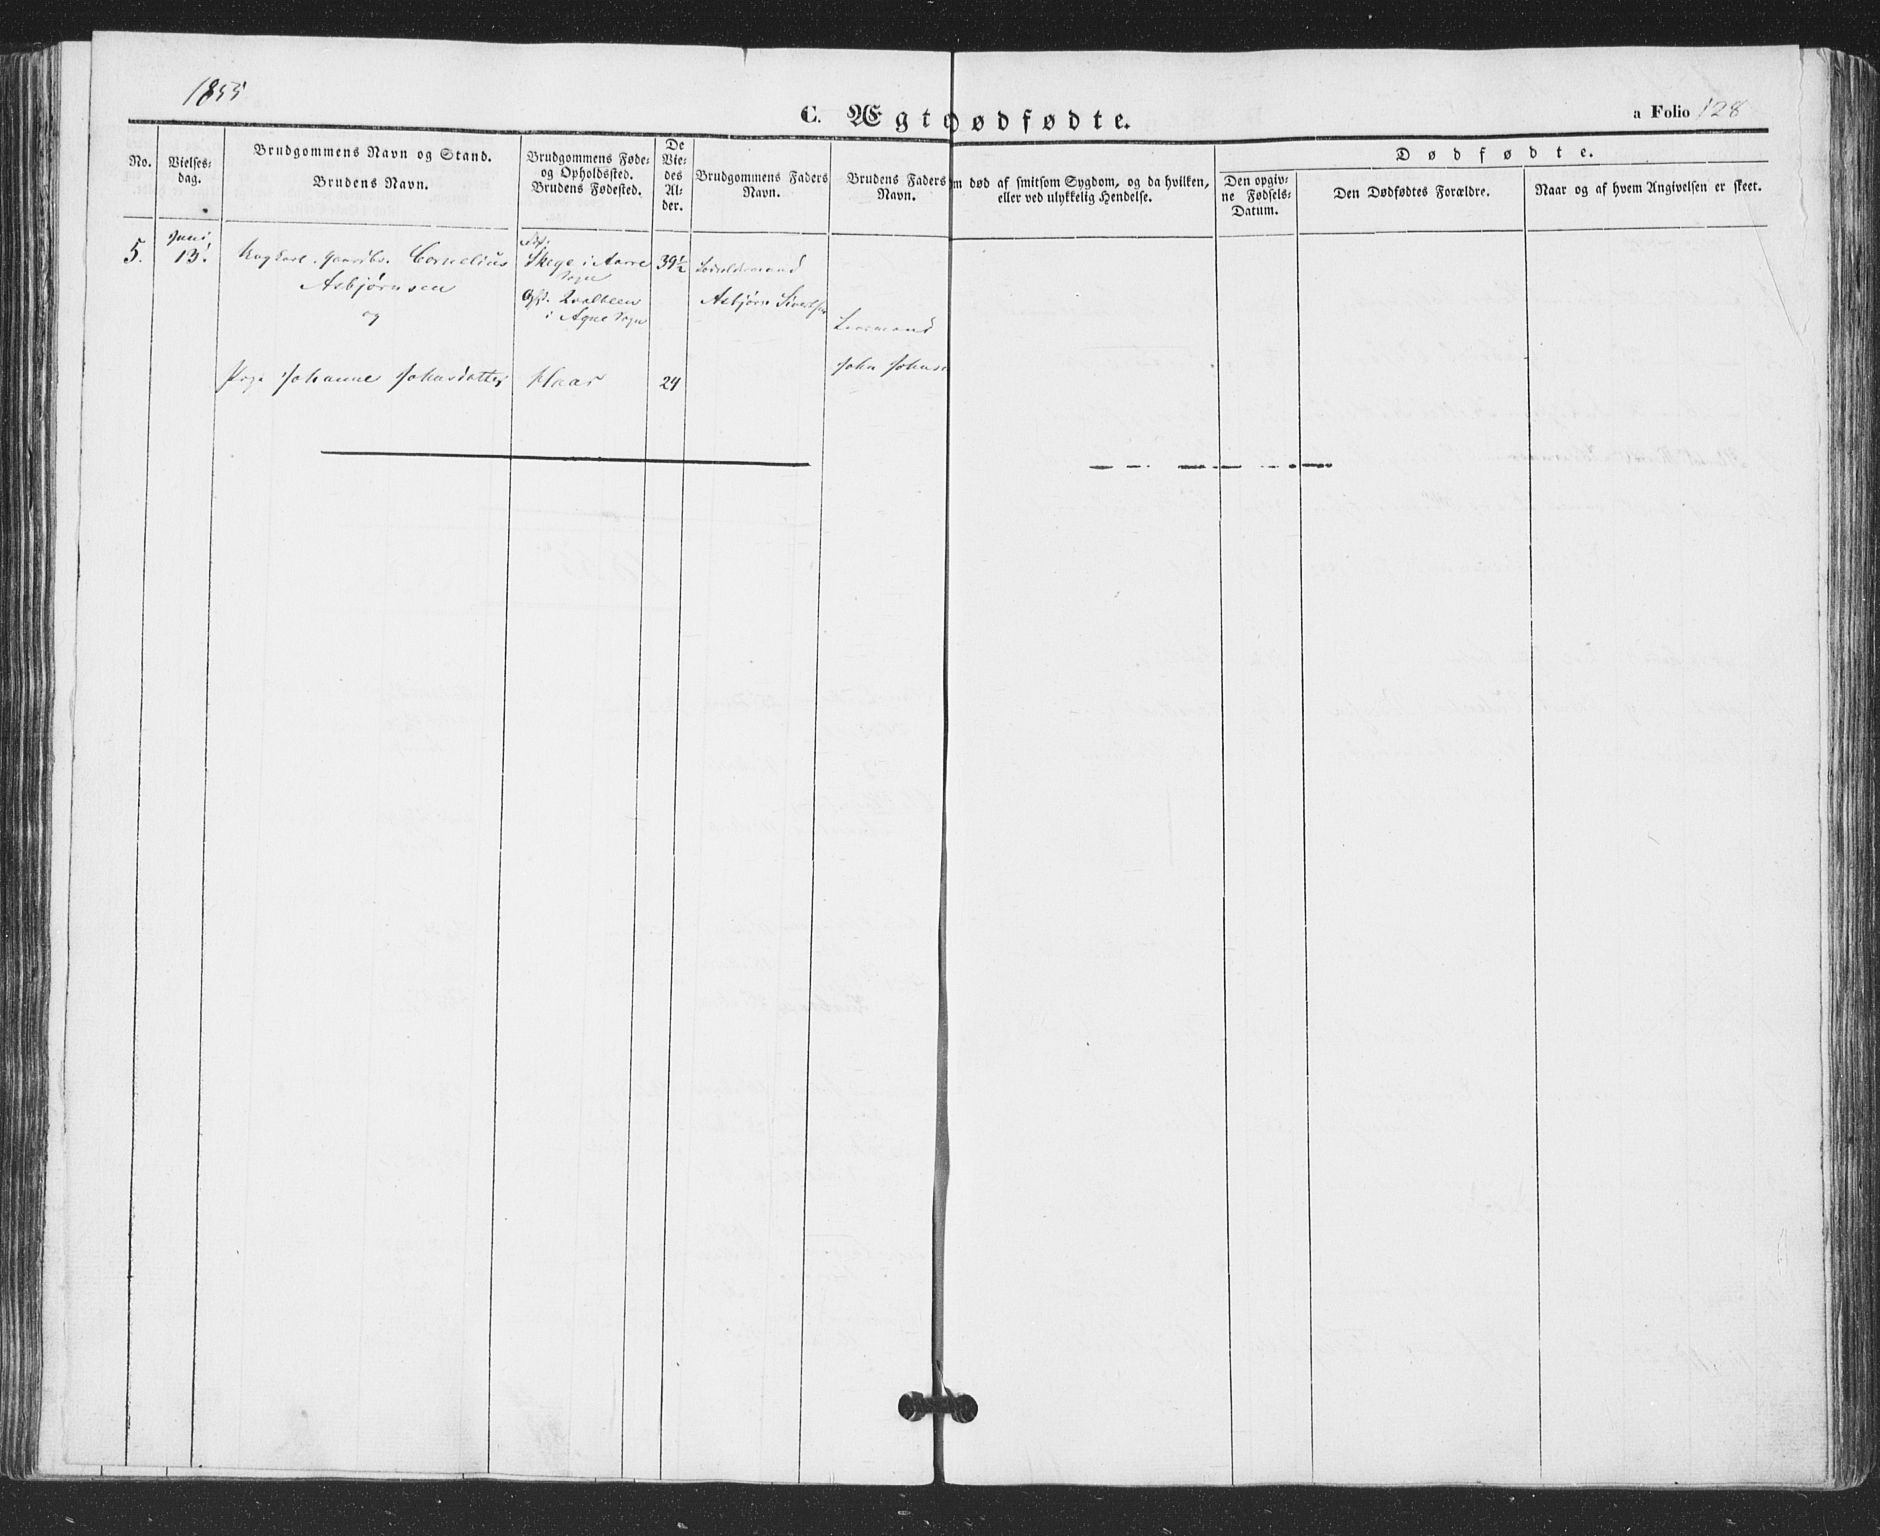 1855
C. Ægt
ødfødte.
a Folio 128
No.
Vielses-
dag.
Brudgommens Navn og Stand.
Brudens Navn.
Brudgommens Føde-
og Opholdssted.
Brudens Fødested.
De
Vie-
des
Al-
der.
Brudgommens Faders
Navn.
Brudens Faders
Navn.
m død af smitsom Sygdom, og da hvilken,
eller ved ulykkelig Hendelse.
Dødfødte.
Den opgiv-
ne Fødsels-
Datum.
Den Dødfødtes Forældre.
Naar og af hvem Angivelsen er skeet.
5.
Juni
13.
Ungkarl. Cornelius
Asbjørnsen
og
Pige Johanne Johnsdatter
Skege i Aarre
Sogn
i Agne Sogn
39½
24
Asbjørn
John Johns